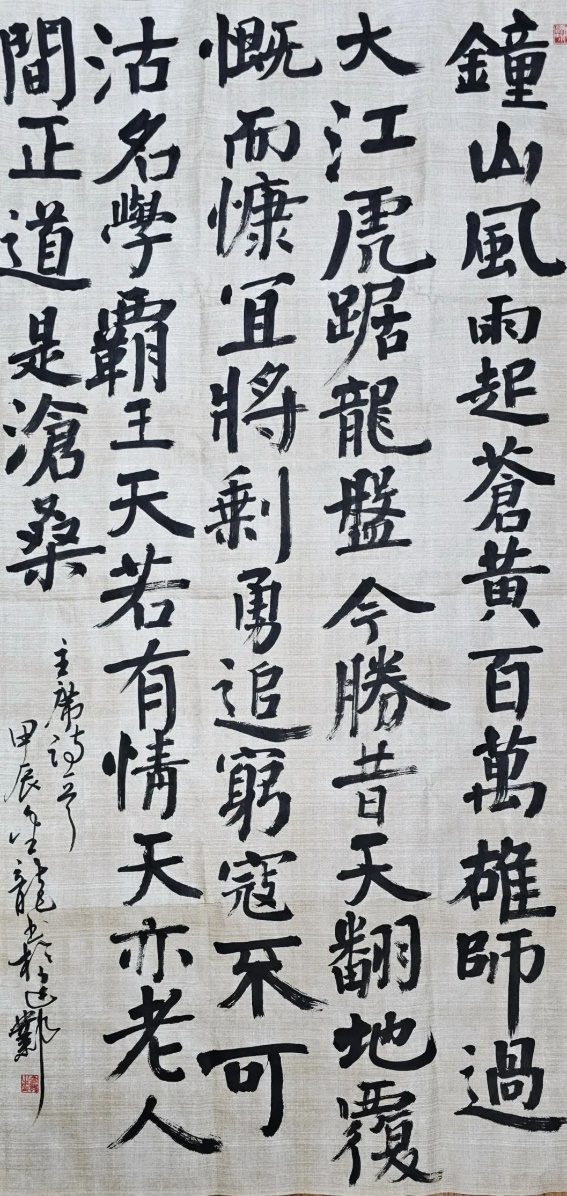 鐘山風雨起蒼黃百萬雄師過
大江虎踞龍盤今勝昔天翻地覆
慨而慷宜將剩勇追窮寇不可
沽名學霸王天若有情天亦老人
間正道是滄桑
主席詩一首
甲辰龍书於